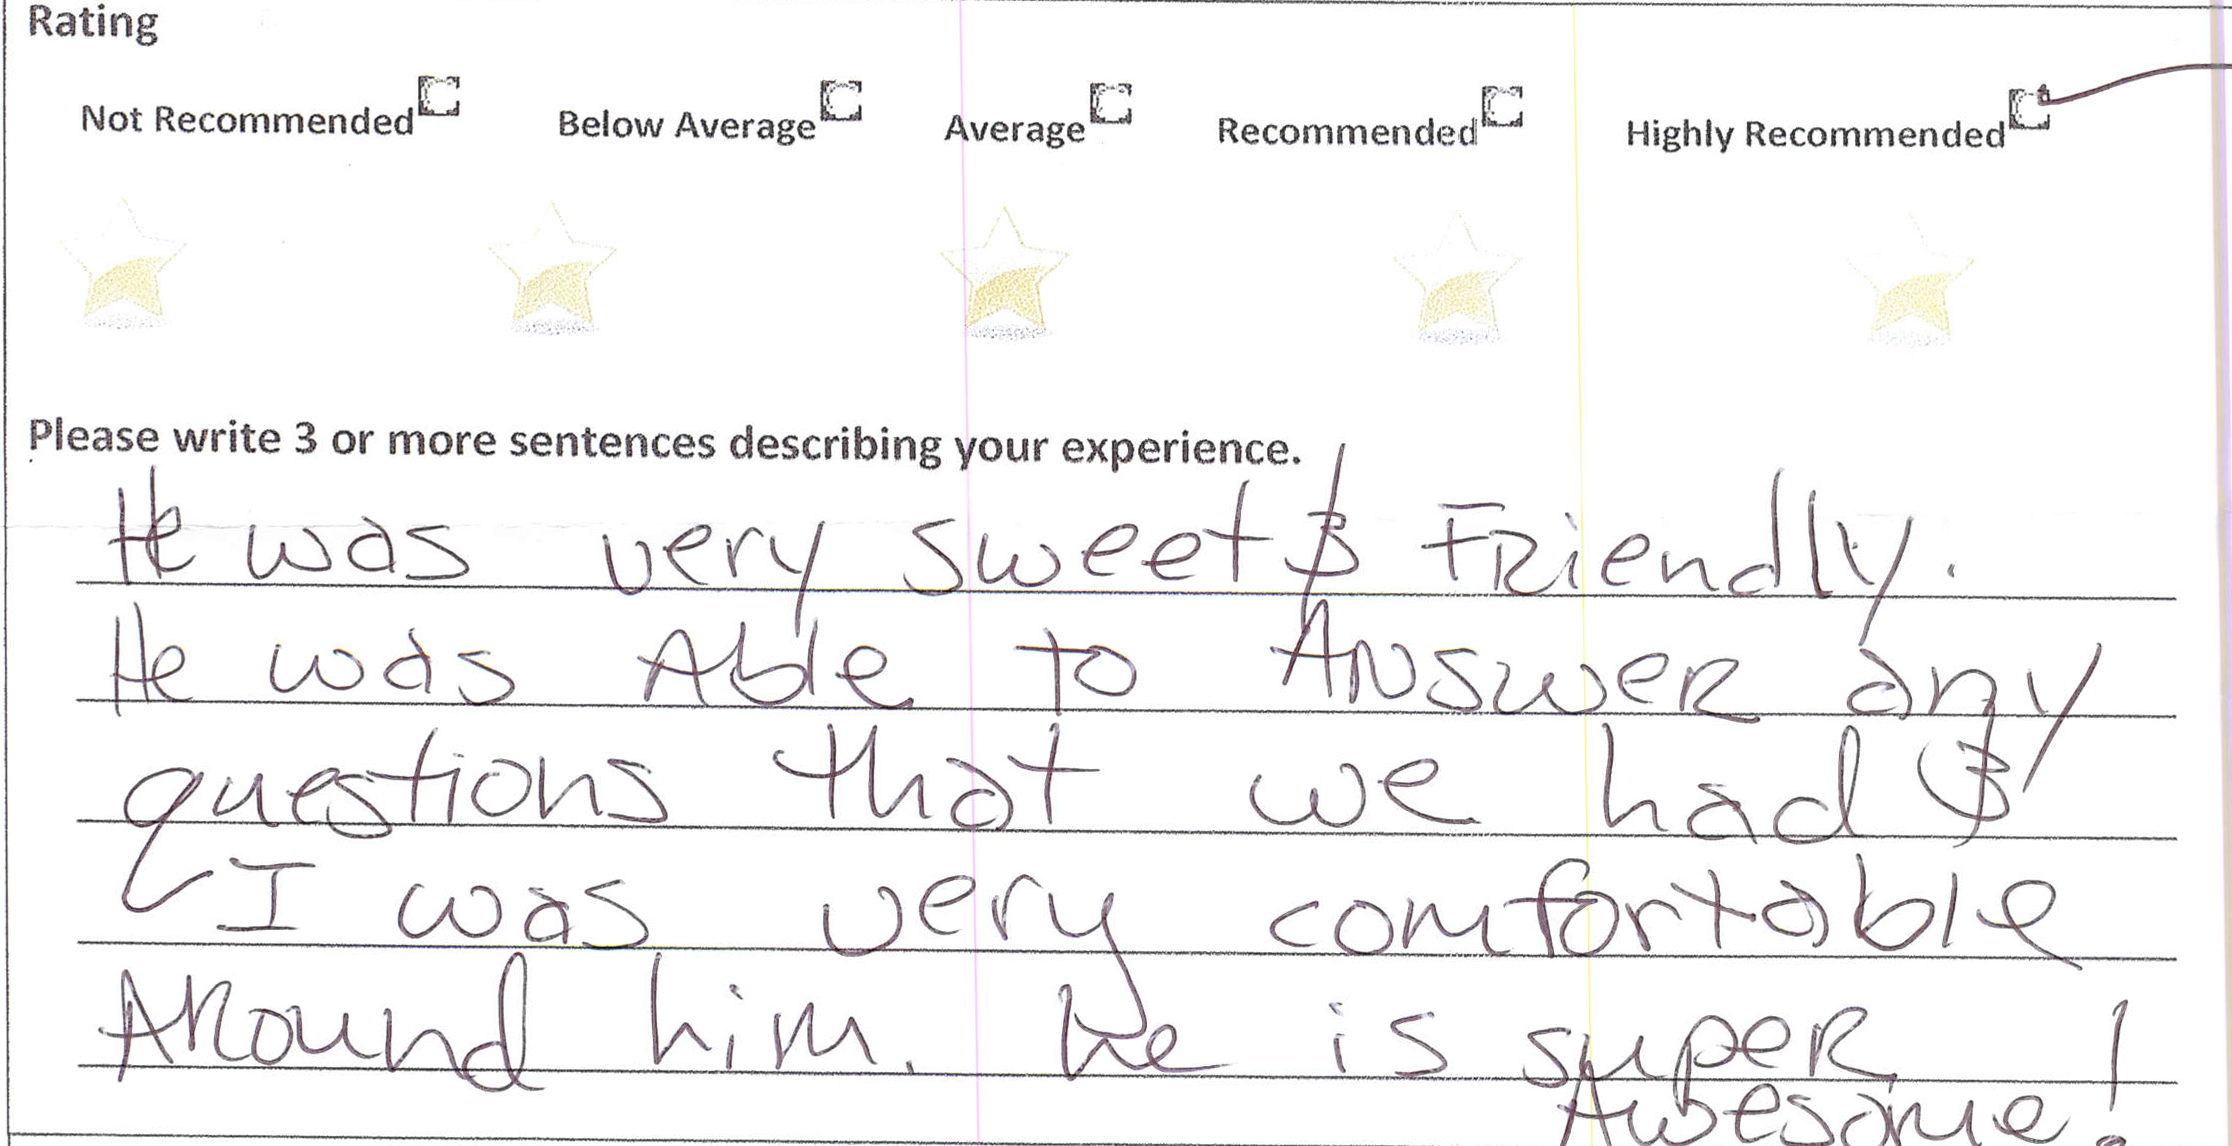 Rating
Not Recommended Below Average Average Recommended Highly Recommended
Please write 3 or more sentences describing your experience.
He was very sweet & Friendly.
He was Able to Answer any
questions that we had &
I was very comfortable
Around him. he is super
Awesome!